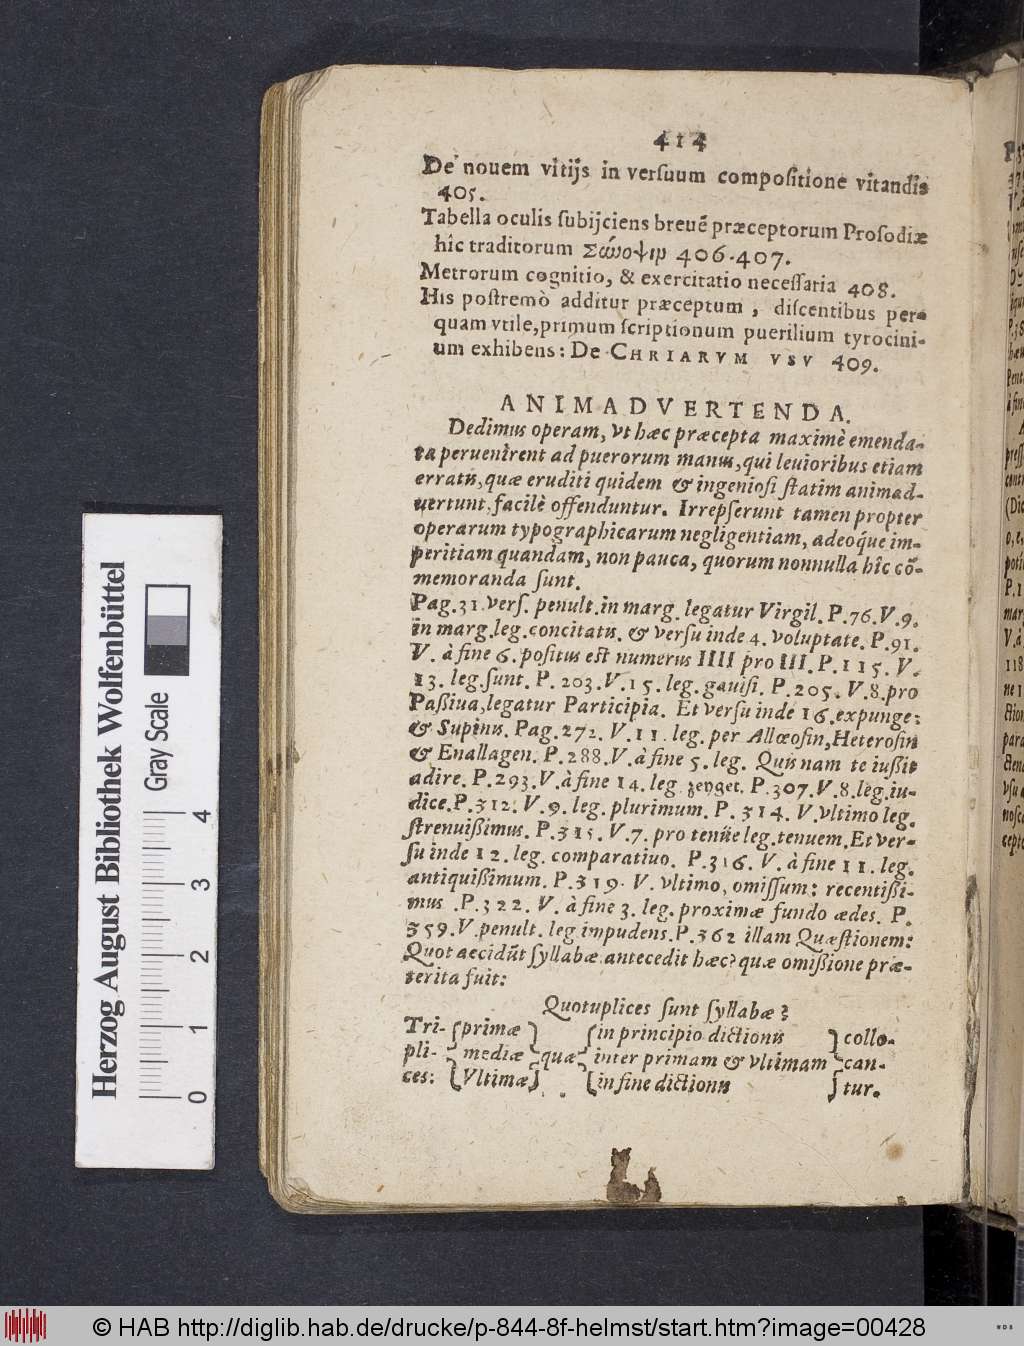 414
De nouem vitijs in versuum compositione vitandis
405.
Tabella oculis subijciens breuē præceptorum Prosodiæ
hîc traditorum Σύνοψιν 406.407.
Metrorum cognitio, & exercitatio necessaria 408.
His postremò additur præceptum, discentibus per-
quam vtile, primum scriptionum puerilium tyrocini-
um exhibens: De CHRIARVM VSV 409.
ANIMADVERTENDA.
Dedimus operam, vt hæc præcepta maximè emenda-
ta peruenirent ad puerorum manus, qui leuioribus etiam
erratis, quæ eruditi quidem & ingeniosi statim animad-
uertunt, facilè offenduntur. Irrepserunt tamen propter
operarum typographicarum negligentiam, adeoq́ue im-
peritiam quandam, non pauca, quorum nonnulla hîc cō-
memoranda sunt.
Pag. 31. vers. penult. in marg. legatur Virgil. P. 76. V. 9.
in marg. leg. concitatis. & versu inde 4. voluptate. P. 91.
V. à fine 6. positus est numerus IIII pro III. P. 115. V.
13. leg. sunt. P. 203. V. 15. leg. gauisi. P. 205. V. 8. pro
Paßiua, legatur Participia. Et versu inde 16. expunge:
& Supinis. Pag. 272. V. 11. leg. per Allœosin, Heterosin
& Enallagen. P. 288. V. à fine 5. leg. Quis nam te iußit
adire. P. 293. V. à fine 14. leg. zeuget. P. 307. V. 8. leg. iu-
dice. P. 312. V. 9. leg. plurimum. P. 314. V. vltimo leg.
strenuißimus. P. 315. V. 7. pro tenüe leg. tenuem. Et ver-
su inde 12. leg. comparatiuo. P. 316. V. à fine 11. leg.
antiquißimum. P. 319. V. vltimo, omissum: recentißi-
mus. P. 322. V. à fine 3. leg. proximæ fundo ædes. P.
359. V. penult. leg impudens. P. 362 illam Quæstionem:
Quot accidūt syllabæ antecedit hæc? quæ omißione præ-
terita fuit:
Quotuplices sunt syllabæ?
Tri- { primæ } { in principio dictionis } collo-
pli- { mediæ } quæ { inter primam & vltimam } can-
ces: { Vltimæ } { in fine dictionis } tur.
Herzog August Bibliothek Wolfenbüttel
Gray Scale
0 1 2 3 4
© HAB http://diglib.hab.de/drucke/p-844-8f-helmst/start.htm?image=00428